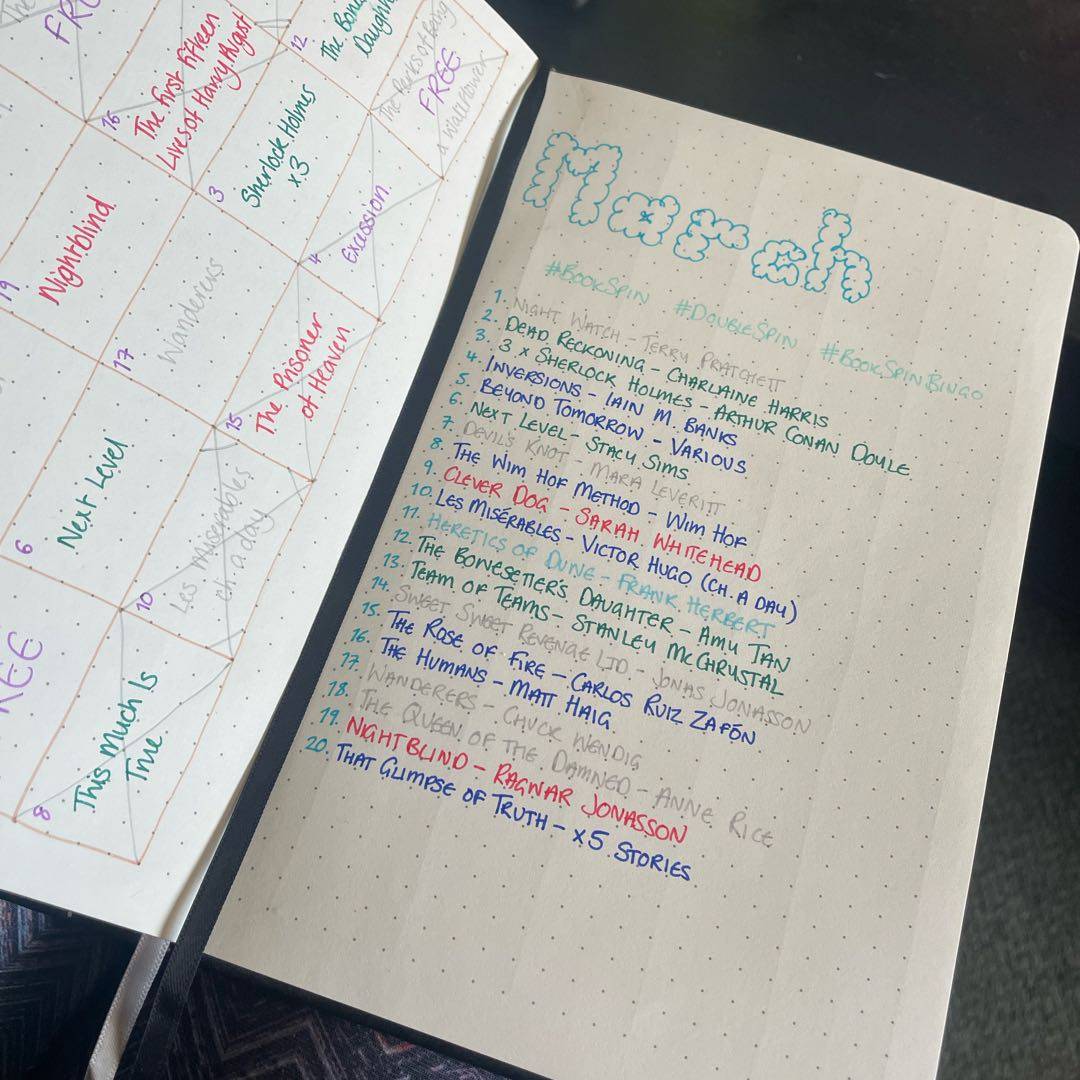 The
FREE
16
The first fifteen
Lives of Harry August
12
The Bone
Daugh
The Perks of being
FREE
a wallflower
19
Nightblind
3
Sherlock Holmes
x3
17
Wanderers
4
Excession
6
Next Level
15
The Prisoner
of Heaven
REE
10
Les Miserables
ch. a day
8
This Much Is
True
March
#BookSpin #DoubleSpin #BookSpinBingo
1. Night Watch - Terry Pratchett
2. Dead Reckoning - Charlaine Harris
3. 3 x Sherlock Holmes - Arthur Conan Doyle
4. Inversions - Iain M. Banks
5. Beyond Tomorrow - Various
6. Next Level - Stacy Sims
7. Devil's Knot - Mara Leveritt
8. The Wim Hof Method - Wim Hof
9. Clever Dog - Sarah Whitehead
10. Les Misérables - Victor Hugo (ch. a day)
11. Heretics of Dune - Frank Herbert
12. The Bonesetter's Daughter - Amy Tan
13. Team of Teams - Stanley McChrystal
14. Sweet Sweet Revenge Ltd - Jonas Jonasson
15. The Rose of Fire - Carlos Ruiz Zafón
16. The Humans - Matt Haig
17. Wanderers - Chuck Wendig
18. The Queen of the Damned - Anne Rice
19. Nightblind - Ragnar Jonasson
20. That Glimpse of Truth - x5 Stories